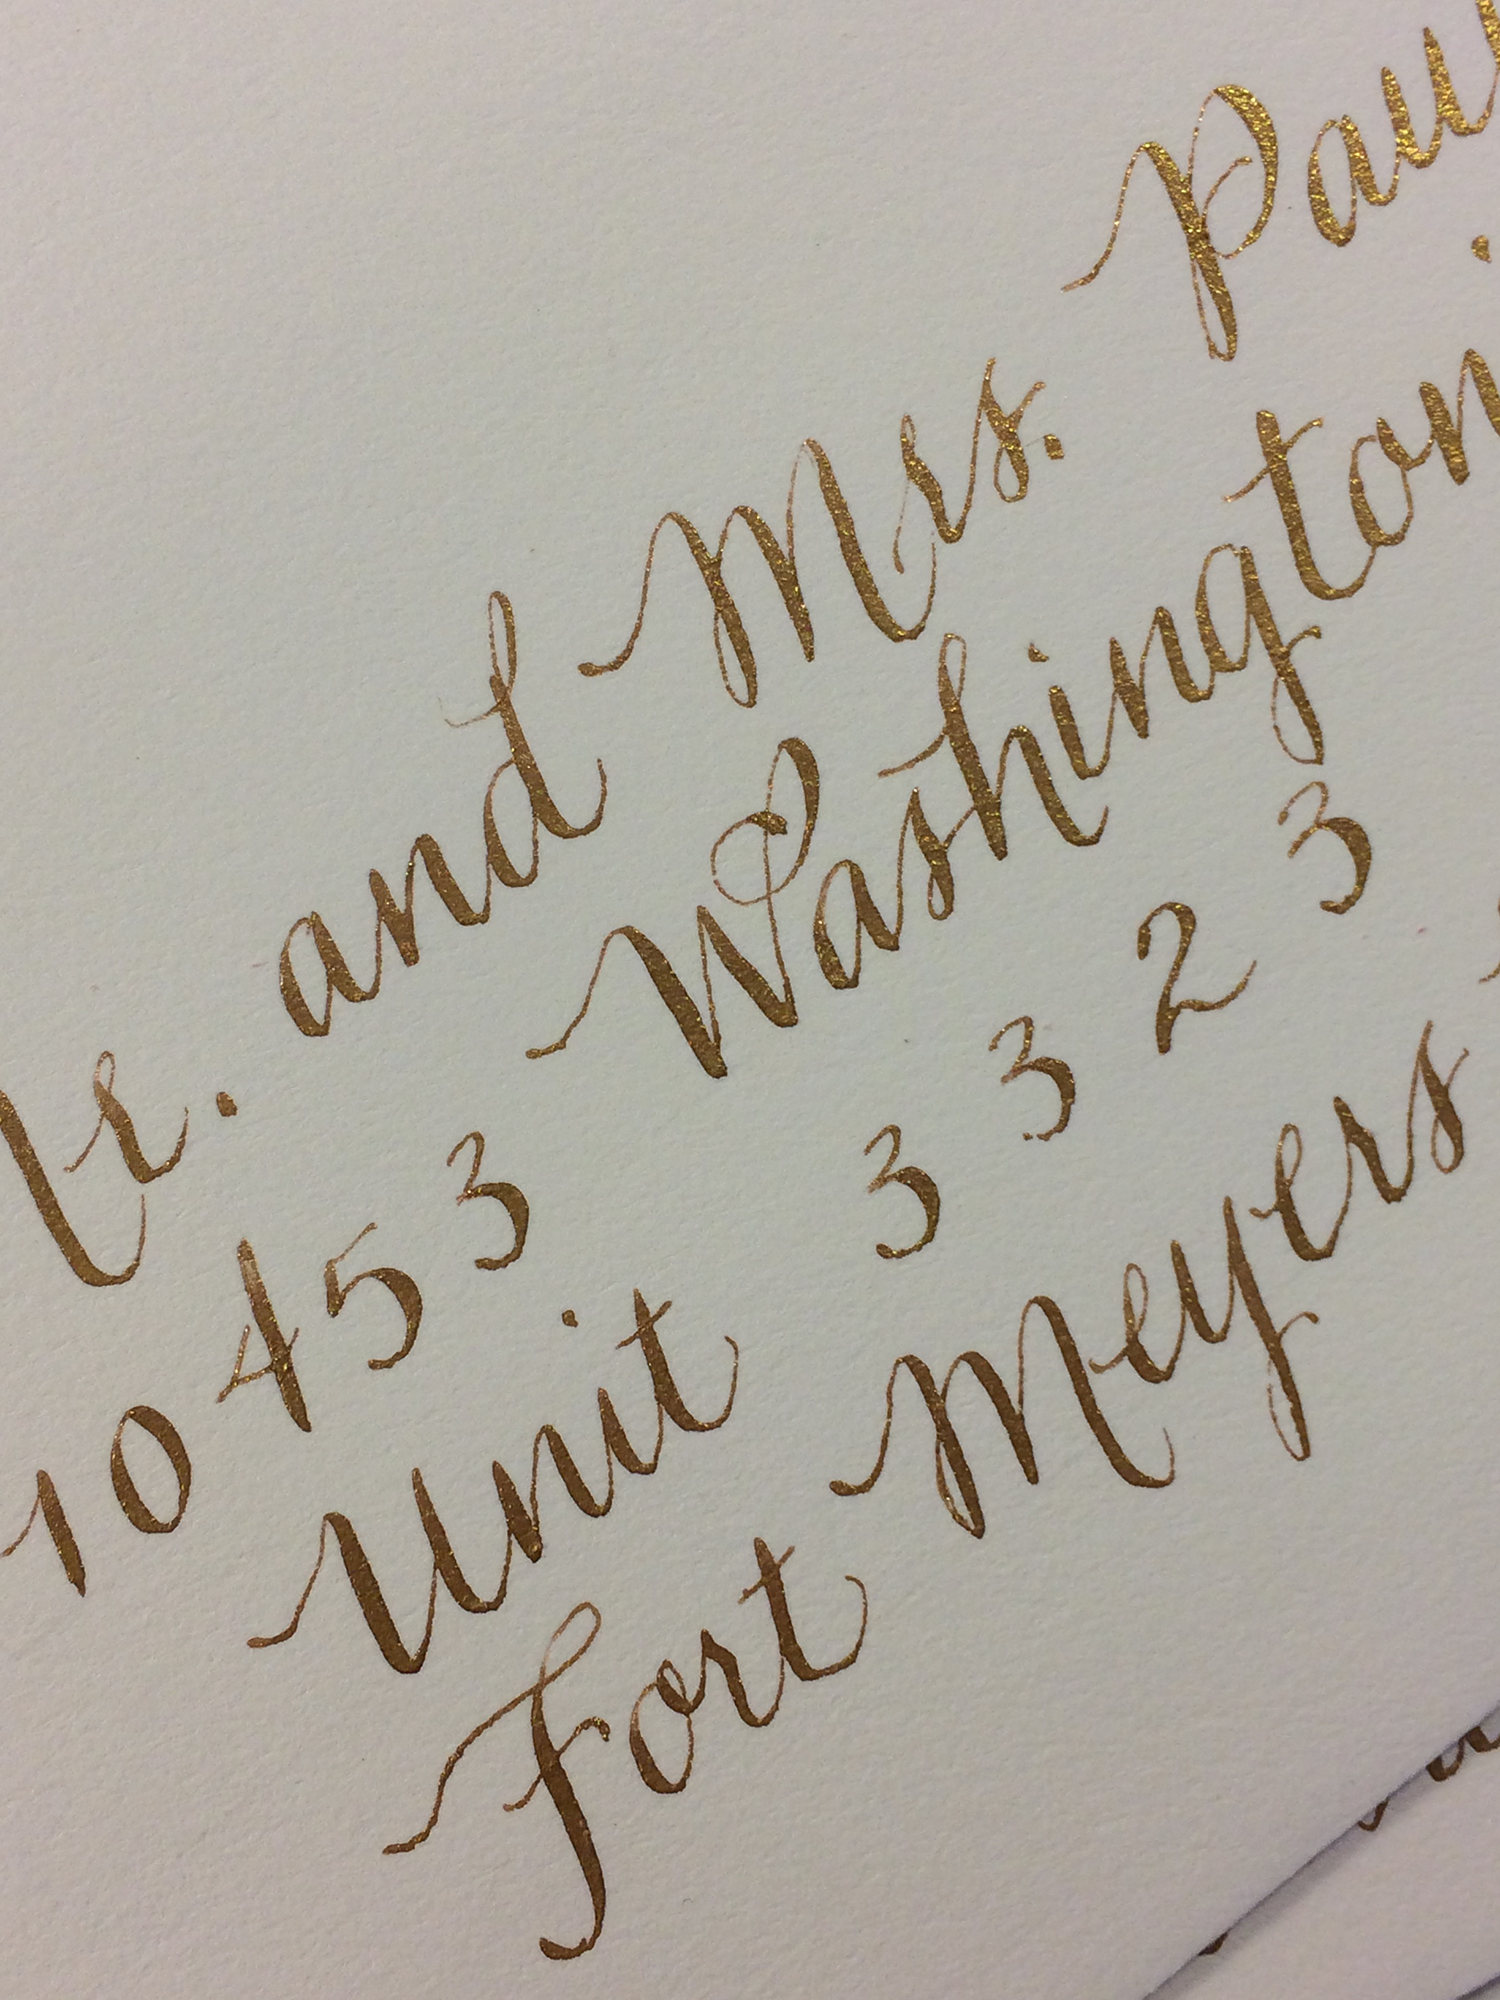 Mr. and Mrs. Paul
10453 Washington
Unit 3323
Fort Meyers